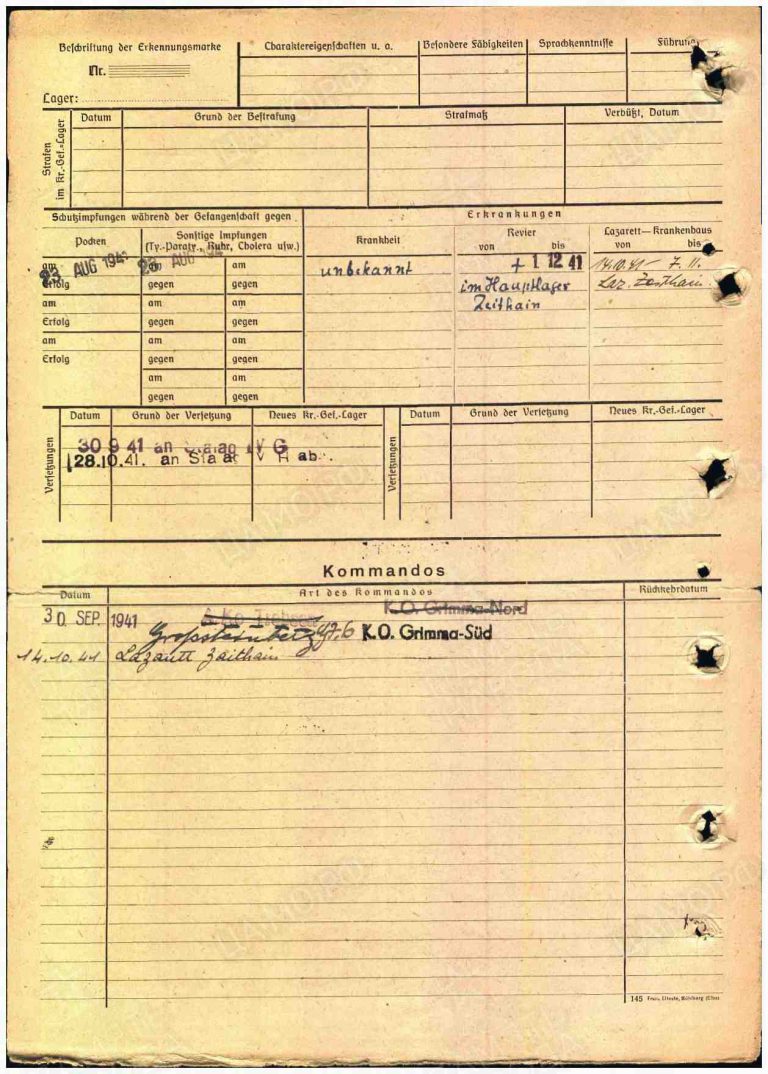 Beschriftung der Erkennungsmarke
Nr.
Lager:
Charaktereigenschaften u. a.
Besondere Fähigkeiten
Sprachkenntnisse
Führung
Strafen im Kr.-Gef.-Lager
Datum
Grund der Bestrafung
Strafmaß
Verbüßt, Datum
Schutzimpfungen während der Gefangenschaft gegen
Erkrankungen
Pocken
Sonstige Impfungen
(Ty.-Paraty., Ruhr, Cholera usw.)
Krankheit
Revier
von bis
Lazarett—Krankenhaus
von bis
am 23 AUG 1941
23 AUG
am
unbekannt
+ 1 12 41
14.10.41 - 7. 11.
Erfolg gegen gegen
im Hauptlager
Laz. Zeithain
am am am
Zeithain
Erfolg gegen gegen
am am am
Erfolg gegen gegen
am am
gegen gegen
Versetzungen
Datum
Grund der Versetzung
Neues Kr.-Gef.-Lager
Versetzungen
Datum
Grund der Versetzung
Neues Kr.-Gef.-Lager
30 9 41 an Stalag IV G
28.10.41. an Stalag V H ab.
Kommandos
Datum
Art des Kommandos
Rückkehrdatum
30. SEP. 1941
K.O. Grimma-Nord
K.O. Grimma-Süd
14.10.41 Lazarett Zeithain
145